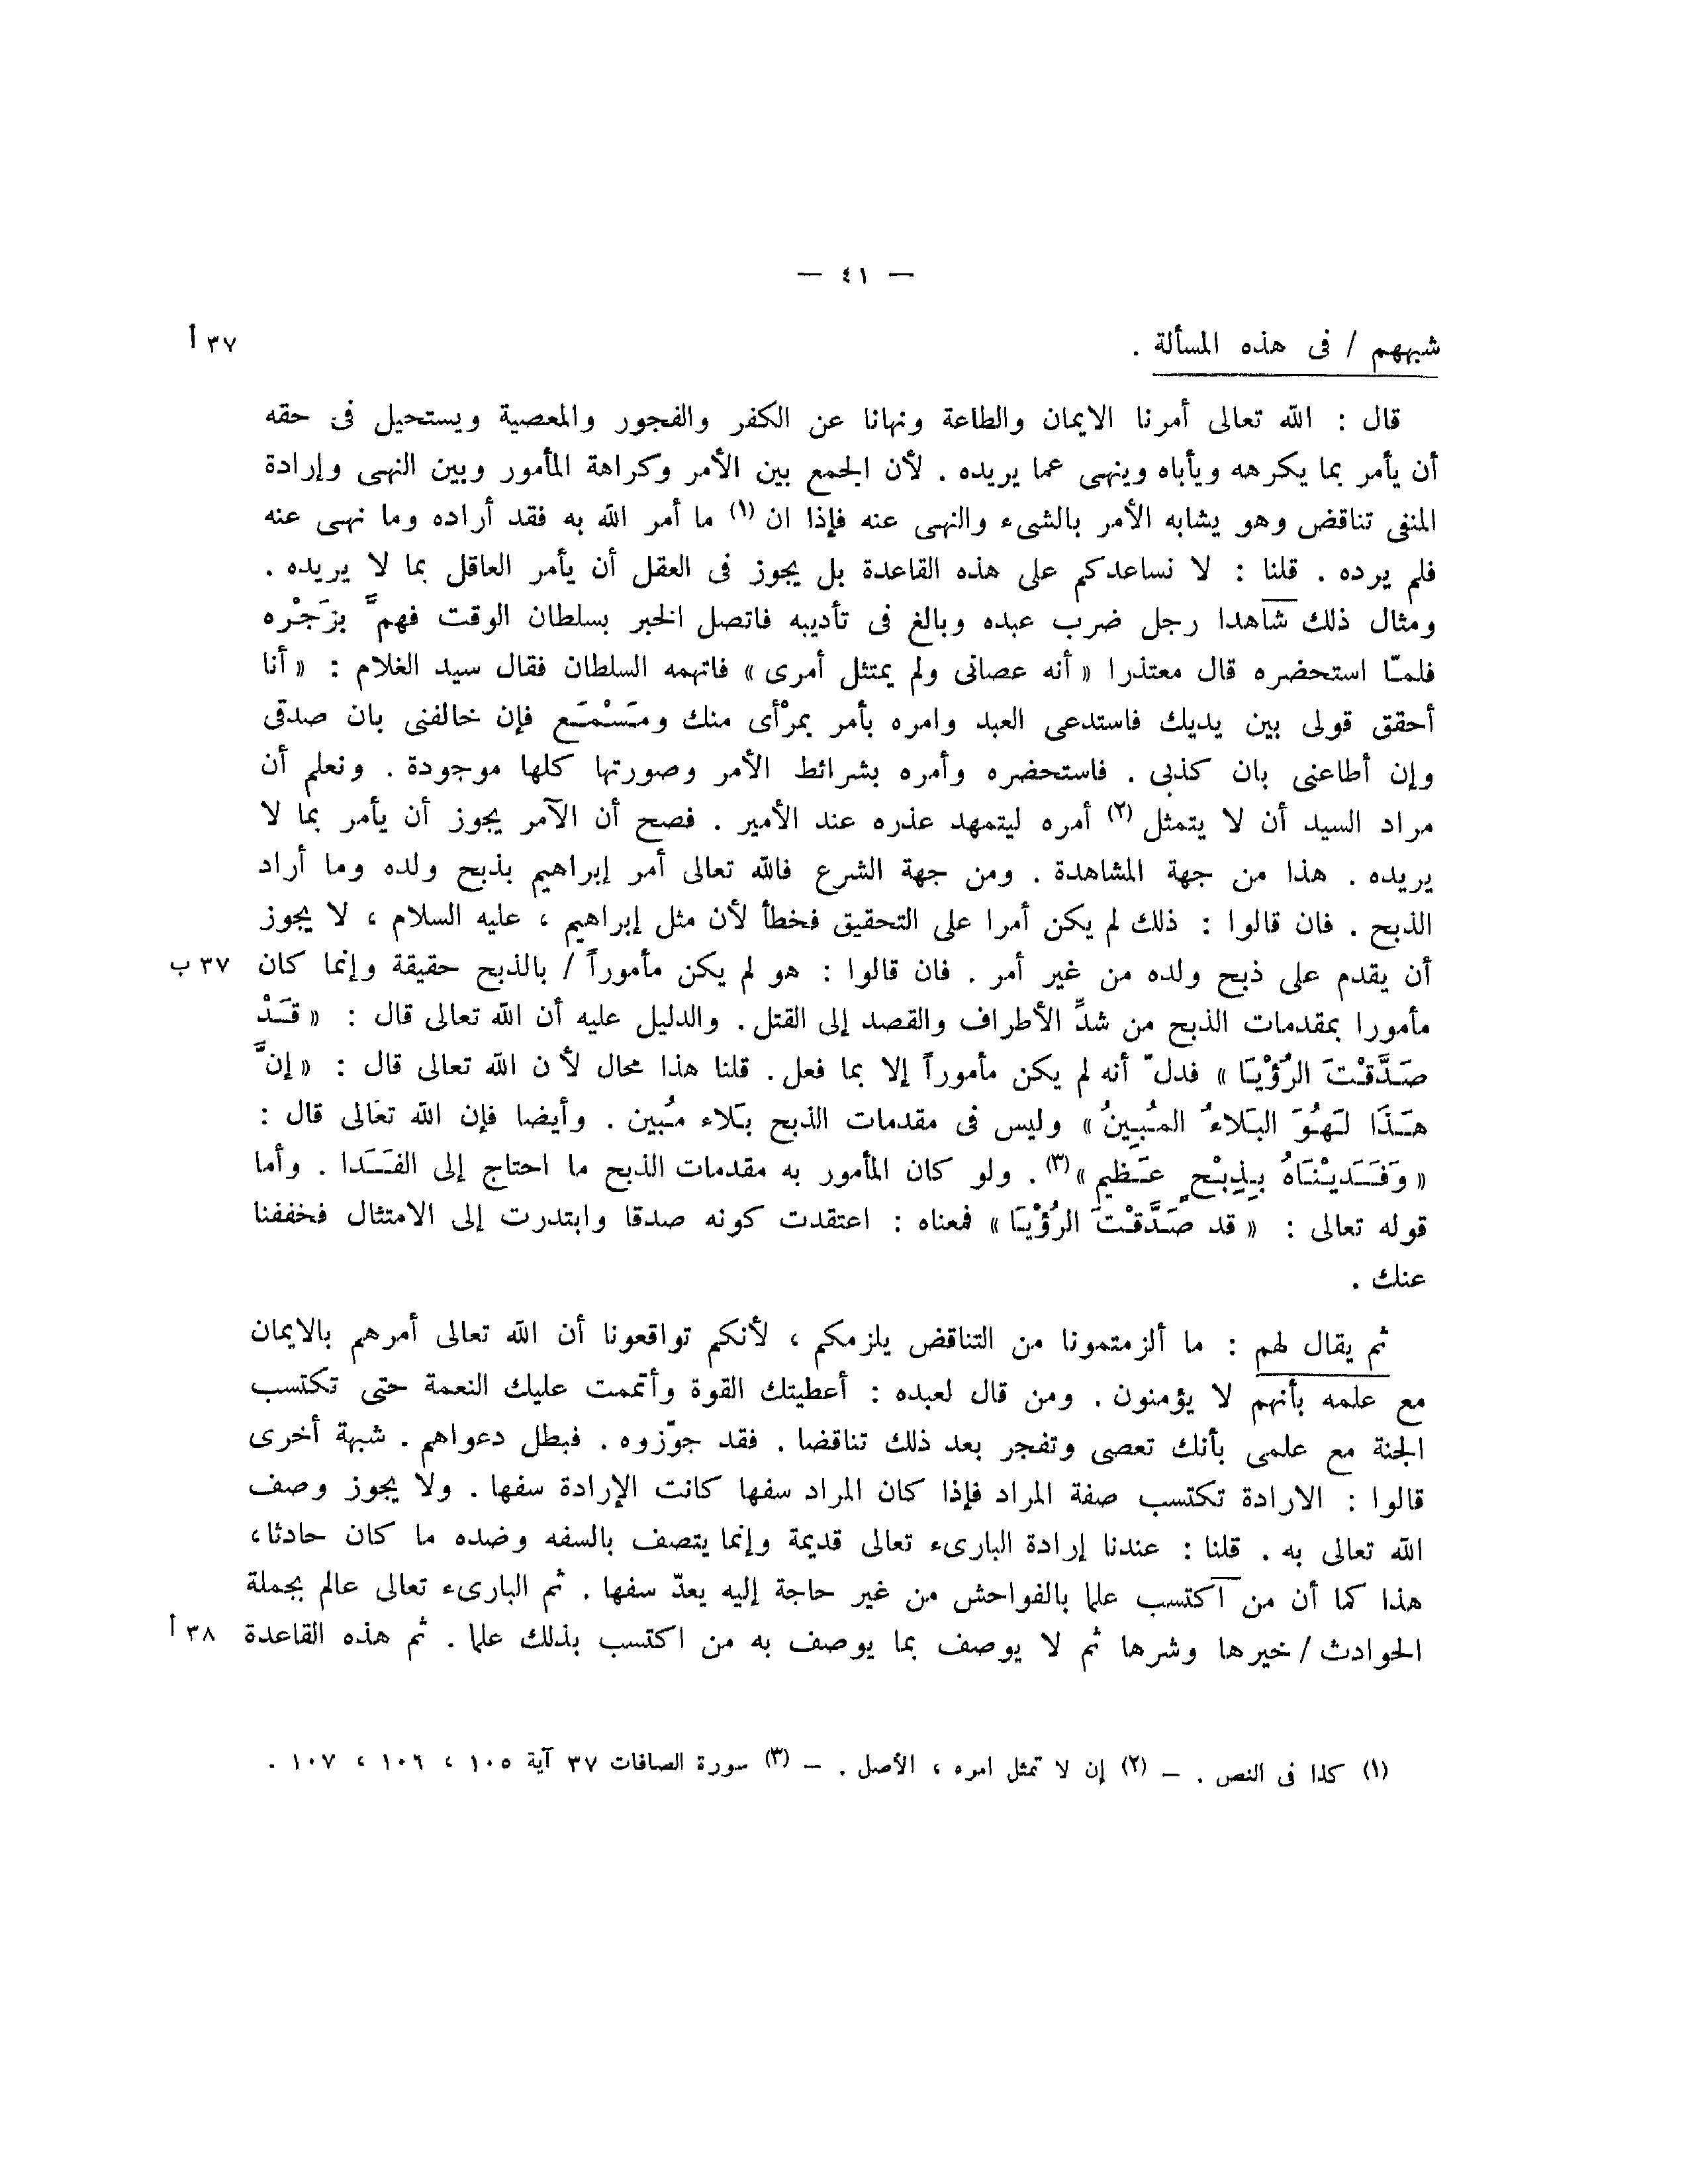 — ٤١ —
شبههم / فى هذه المسألة . ٣٧ أ
قال : الله تعالى أمرنا الايمان والطاعة ونهانا عن الكفر والفجور والمعصية ويستحيل فى حقه
أن يأمر بما يكرهه ويأباه وينهى عما يريده . لأن الجمع بين الأمر وكراهة المأمور وبين النهى وإرادة
المنفى تناقض وهو يشابه الأمر بالشىء والنهى عنه فإذا ان (١) ما أمر الله به فقد أراده وما نهى عنه
فلم يرده . قلنا : لا نساعدكم على هذه القاعدة بل يجوز فى العقل أن يأمر العاقل بما لا يريده .
ومثال ذلك شاهدا رجل ضرب عبده وبالغ فى تأديبه فاتصل الخبر بسلطان الوقت فهمَّ بزَجْره
فلمّا استحضره قال معتذرا « أنه عصانى ولم يمتثل أمرى » فاتهمه السلطان فقال سيد الغلام : « أنا
أحقق قولى بين يديك فاستدعى العبد وامره بأمر بمرْأى منك ومَسْمَع فإن خالفنى بان صدقى
وإن أطاعنى بان كذبى . فاستحضره وأمره بشرائط الأمر وصورتها كلها موجودة . ونعلم أن
مراد السيد أن لا يتمثل (٢) أمره ليتمهد عذره عند الأمير . فصح أن الآمر يجوز أن يأمر بما لا
يريده . هذا من جهة المشاهدة . ومن جهة الشرع فالله تعالى أمر إبراهيم بذبح ولده وما أراد
الذبح . فان قالوا : ذلك لم يكن أمرا على التحقيق فخطأ لأن مثل إبراهيم ، عليه السلام ، لا يجوز
أن يقدم على ذبح ولده من غير أمر . فان قالوا : هو لم يكن مأموراً / بالذبح حقيقة وإنما كان ٣٧ ب
مأمورا بمقدمات الذبح من شدِّ الأطراف والقصد إلى القتل . والدليل عليه أن الله تعالى قال : « قَدْ
صَدَّقْتَ الرُؤْيَا » فدلّ أنه لم يكن مأموراً إلا بما فعل . قلنا هذا محال لأ ن الله تعالى قال : « إنَّ
هَذَا لَهُوَ البَلاءُ المُبِينُ » وليس فى مقدمات الذبح بَلاء مُبين . وأيضا فإن الله تعالى قال :
« وَفَدَيْنَاهُ بِذِبْحٍ عَظيم » (٣) . ولو كان المأمور به مقدمات الذبح ما احتاج إلى الفَدَا . وأما
قوله تعالى : « قد صَدَّقْتَ الرُؤْيَا » فمعناه : اعتقدت كونه صدقا وابتدرت إلى الامتثال فخففنا
عنك .
ثم يقال لهم : ما ألزمتمونا من التناقض يلزمكم ، لأنكم تواقعونا أن الله تعالى أمرهم بالايمان
مع علمه بأنهم لا يؤمنون . ومن قال لعبده : أعطيتك القوة وأتممت عليك النعمة حتى تكتسب
الجنة مع علمى بأنك تعصى وتفجر بعد ذلك تناقضا . فقد جوّزوه . فبطل دعواهم . شبهة أخرى
قالوا : الارادة تكتسب صفة المراد فإذا كان المراد سفها كانت الإرادة سفها . ولا يجوز وصف
الله تعالى به . قلنا : عندنا إرادة البارىء تعالى قديمة وإنما يتصف بالسفه وضده ما كان حادثا،
هذا كما أن من اكتسب علما بالفواحش من غير حاجة إليه يعدّ سفها . ثم البارىء تعالى عالم بجملة
الحوادث / خيرها وشرها ثم لا يوصف بما يوصف به من اكتسب بذلك علما . ثم هذه القاعدة ٣٨ أ
(١) كذا فى النص . – (٢) إن لا تمثل امره ، الأصل . – (٣) سورة الصافات ٣٧ آية ١٠٥ ، ١٠٦ ، ١٠٧ .